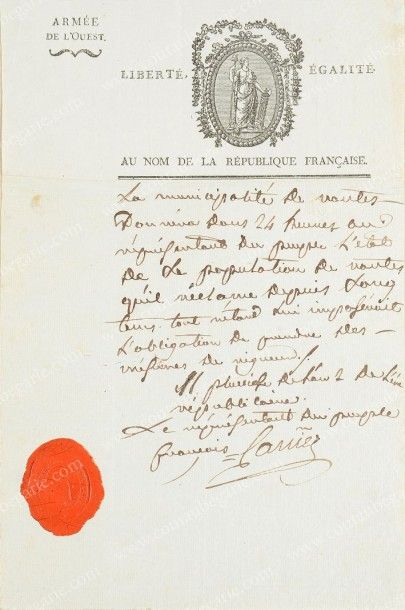 ARMÉE
DE L'OUEST.
LIBERTÉ, ÉGALITÉ.
AU NOM DE LA RÉPUBLIQUE FRANÇAISE.
La municipalité de nantes
Donnera dans 24 heures au
représentant du peuple L'état
De La population de nantes
qu'il réclame depuis Long
tems. tout retard lui imposerait
L'obligation de prendre des
mésures de rigueur.
11 pluviose de L'an 2 De L'ère
républicaine.
Le représentant du peuple
françois = Carrier